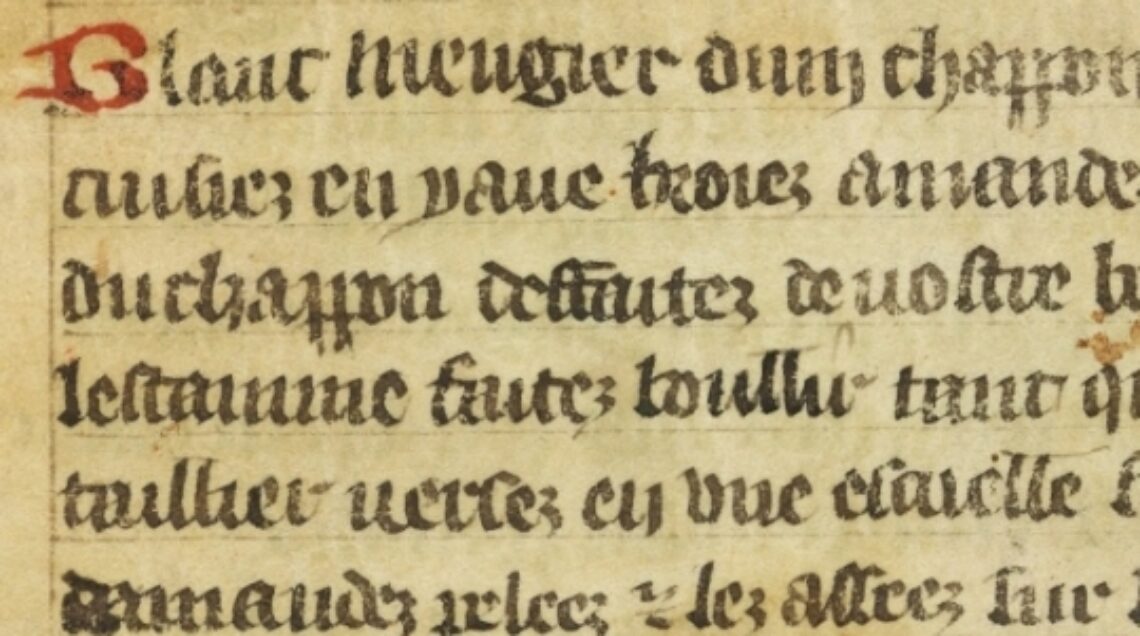 Blanc mengier dun chappon
cuisiez en yaue broiez amande
du chappon deffaitez de uostre
lestamine faitez boullir tant
taillier uersez en vne escuelle
damandez peleez ⁊ lez asseez sur